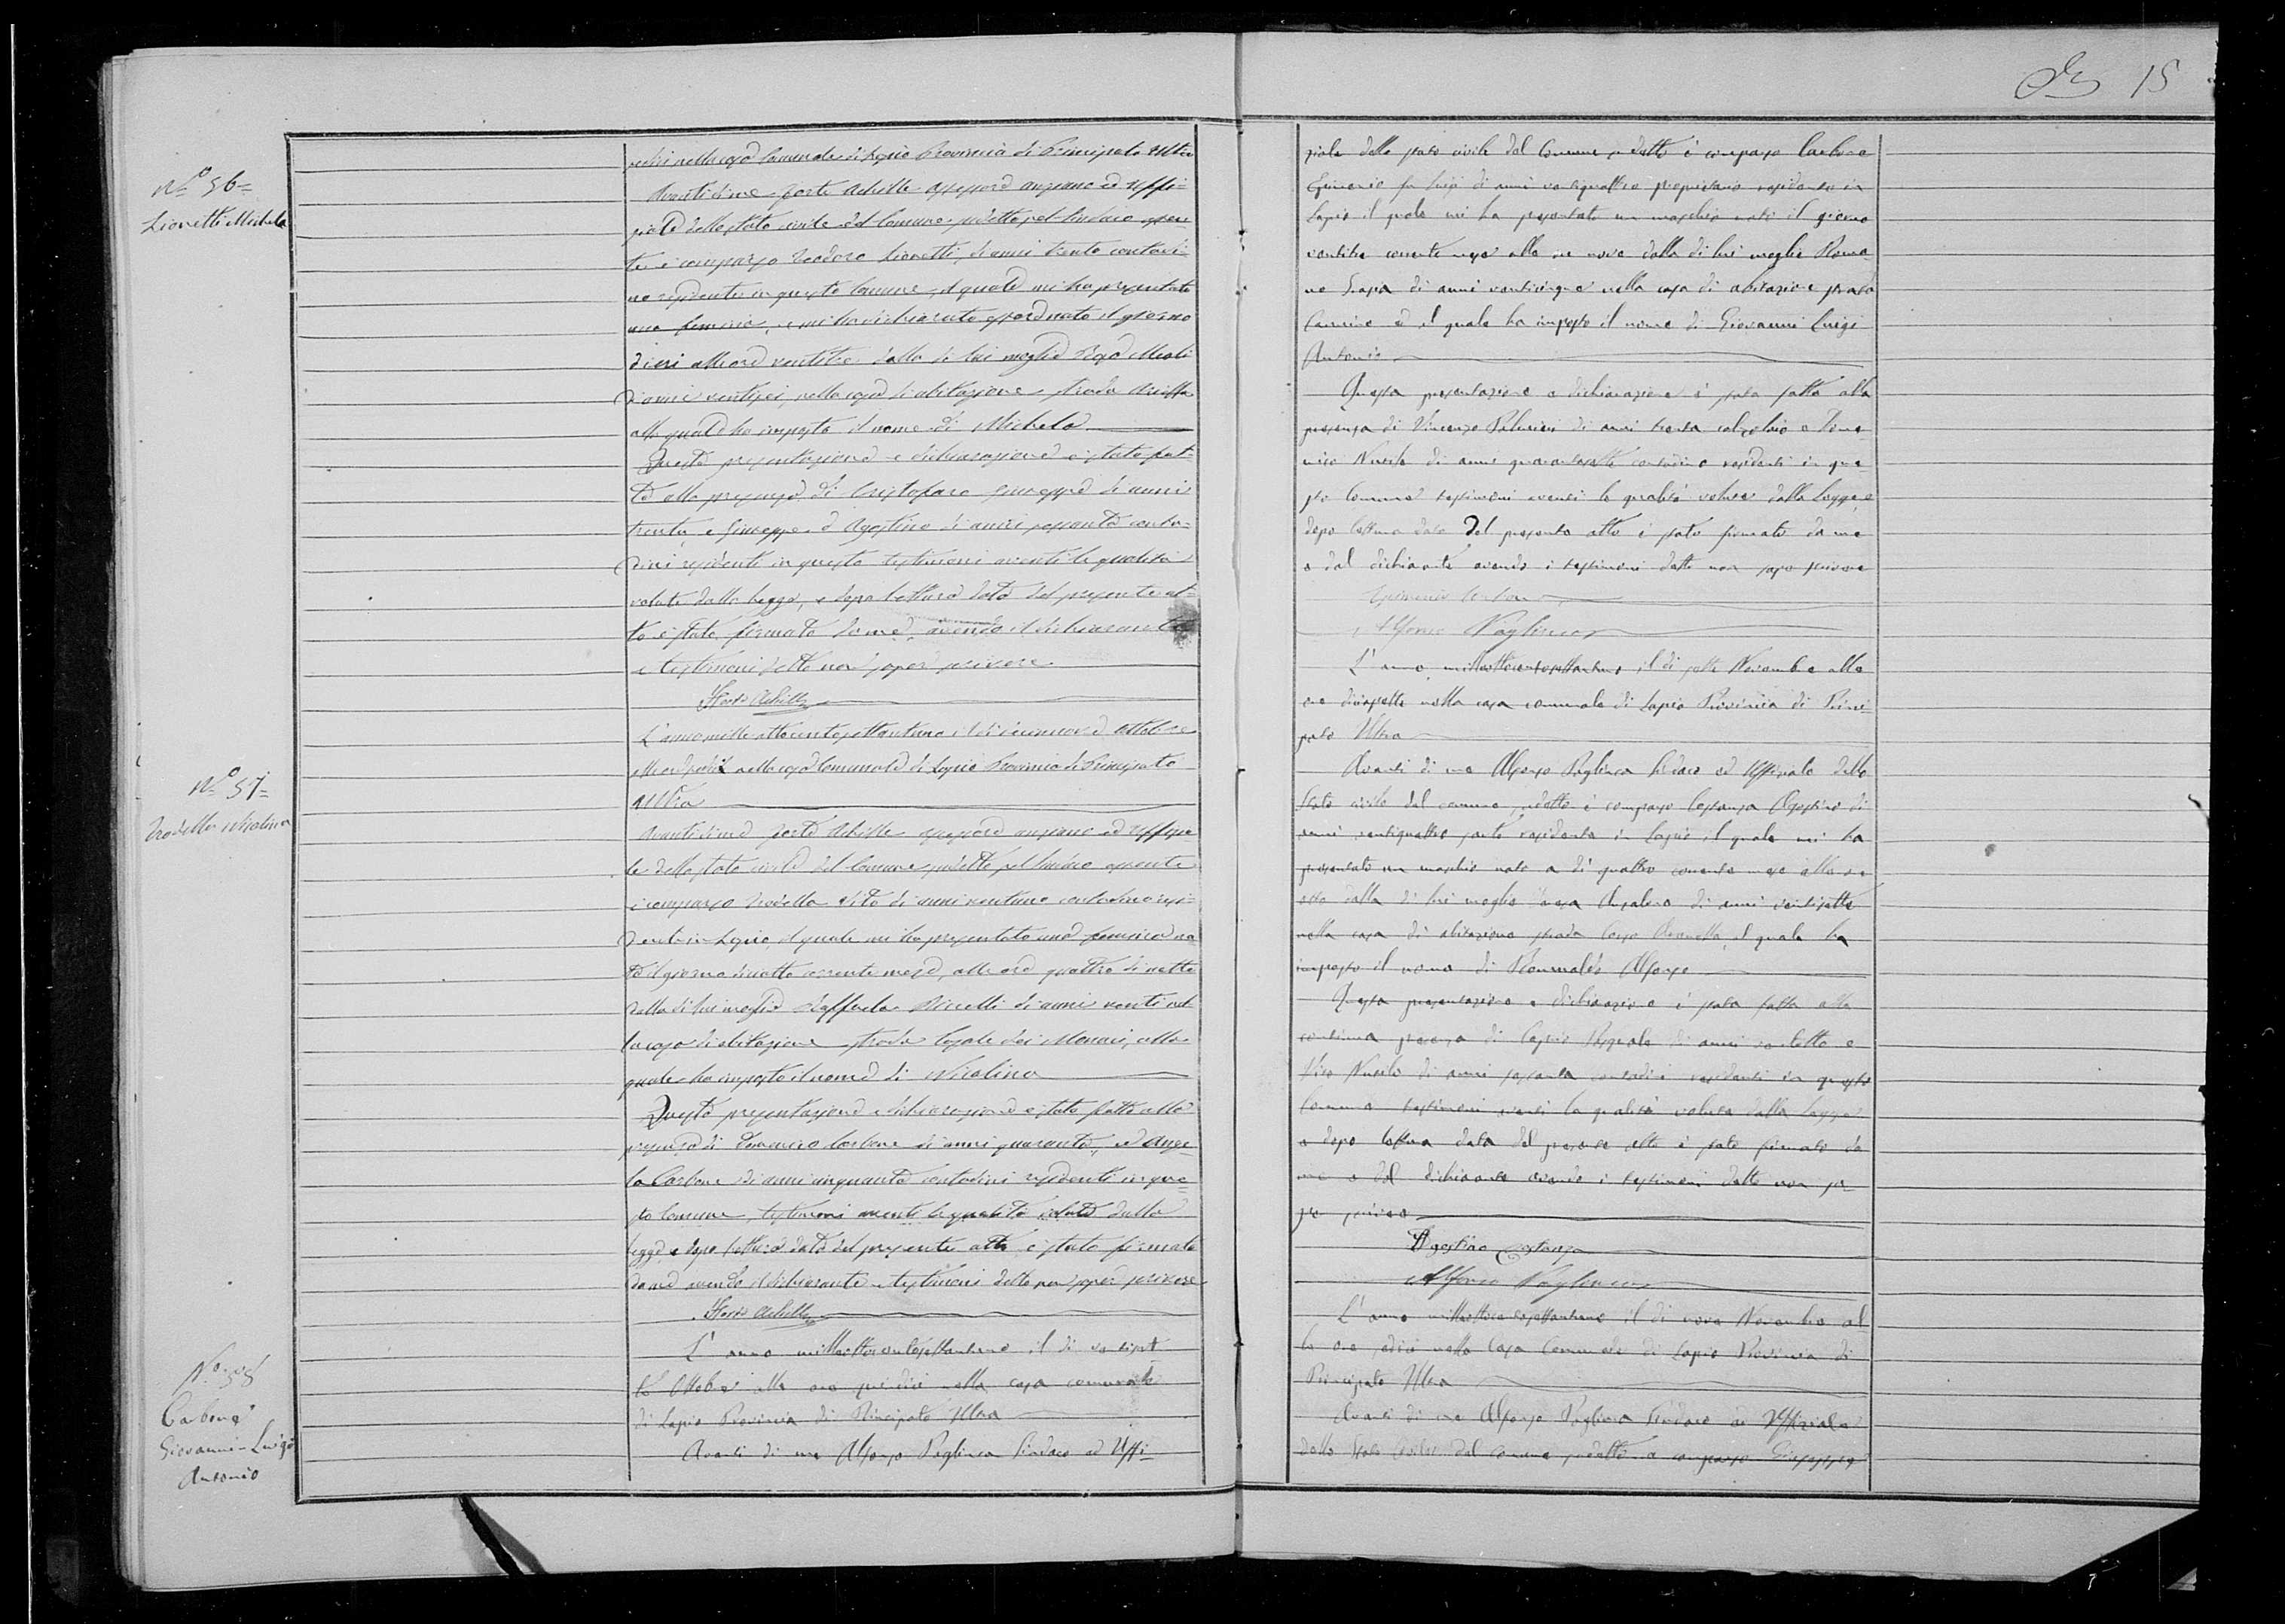 15
N.o 56=
Lionetti Michela
nella casa Comunale di Lapio Provincia di Principato Ultra
Avanti di me Forte Achille assessore anziano ed Uffi-
ziale dello stato civile del Comune sudetto pel Sindaco assen-
te è comparso Teodoro Lionetti, di anni trenta contadi-
no residente in questo Comune, il quale mi ha presentato
una femina, e mi ha dichiarato essere nata il giorno
di ieri alle ore ventitre dalla di lui moglie
d'anni ventisei, nella casa d'abitazione strada
alla quale ha imposto il nome di Michela
Questa presentazione e dichiarazione è stata fat-
ta alla presenza di Cristofaro Giuseppe di anni
trenta e Giuseppe d'Agostino di anni sessanta conta-
dini residenti in questo testimoni aventi le qualità
volute dalla legge, e dopo lettura data del presente at-
to è stato firmato da me, avendo il dichiarante
e testimoni detto non saper scrivere
Forte Achille
N.o 57=
Trodella Nicolina
L'anno mille ottocento settantuno il dì diecinove Ottobre
alle ore nella casa Comunale di Lapio Provincia di Principato
Ultra
Avanti di me Forte Achille assessore anziano ed Uffizia-
le dello stato civile del Comune sudetto pel Sindaco assente
è comparso Trodella Vito di anni ventuno contadino resi-
dente in Lapio il quale mi ha presentato una femina na-
ta il giorno diciotto corrente mese, alle ore quattro di notte
dalla di lui moglie Raffaela di anni venti nel-
la casa di abitazione strada Casale dei Monaci, alla
quale ha imposto il nome di Nicolina
Questa presentazione e dichiarazione è stata fatta alla
presenza di Domenico Carbone di anni quaranta, ed Ange-
lo Carbone di anni cinquanta contadini residenti in que-
sto Comune, testimoni aventi le qualità volute dalla
legge e dopo lettura data del presente atto è stato firmato
da me avendo il dichiarante e testimoni detto non saper scrivere
Forte Achille
N.o 58
Carbone
Giovanni-Luigi
Antonio
L'anno milleottocentosettantuno il dì
Ottobre alle ore quindici nella casa comunale
di Lapio Provincia di Principato Ultra
Avanti di me Alfonso Paglinca Sindaco ed Uffi-
ziale dello stato civile del Comune sudetto è comparso Carbone
Epimenio fu Luigi di anni ventiquattro proprietario residente in
Lapio il quale mi ha presentato un maschio nato il giorno
ventitre corrente mese alle ore nove dalla di lui moglie
di anni venticinque nella casa di abitazione strada
Carmine ed il quale ha imposto il nome di Giovanni Luigi
Antonio
Questa presentazione e dichiarazione è stata fatta alla
presenza di Vincenzo di anni trenta calzolaio e Dome-
nico di anni quarantasette contadino residenti in que-
sto Comune testimoni aventi le qualità volute dalla Legge, e
dopo lettura data del presente atto è stato firmato da me
e dal dichiarante avendo i testimoni detto non sapere scrivere
Epimenio Carbone
Alfonso Paglinca
L'anno milleottocentosettantuno il dì sette Novembre alle
ore diciasette nella casa comunale di Lapio Provincia di Princi-
pato Ultra
Avanti di me Alfonso Paglinca Sindaco ed Uffiziale dello
Stato civile del comune sudetto è comparso Costanza Agostino di
anni ventiquattro sarto residente in Lapio il quale mi ha
presentato un maschio nato a dì quattro corrente mese alle ore
otto dalla di lui moglie di anni ventisette
nella casa di abitazione strada il quale ha
imposto il nome di Romualdo Alfonso
Questa presentazione e dichiarazione è stata fatta alla
continua presenza di Pasquale di anni e
Vito di anni sessanta contadini residenti in questo
Comune testimoni aventi le qualità volute dalla Legge
e dopo lettura data del presente atto è stato firmato da
me e dal dichiarante avendo i testimoni detto non sa-
pere scrivere
Agostino Costanza
Alfonso Paglinca
L'anno milleottocentosettantuno il dì nove Novembre al
le ore sedici nella Casa Comunale di Lapio Provincia di
Principato Ultra
Avanti di me Alfonso Paglinca Sindaco ed Uffiziale
dello Stato Civile del comune sudetto è comparso Giuseppe